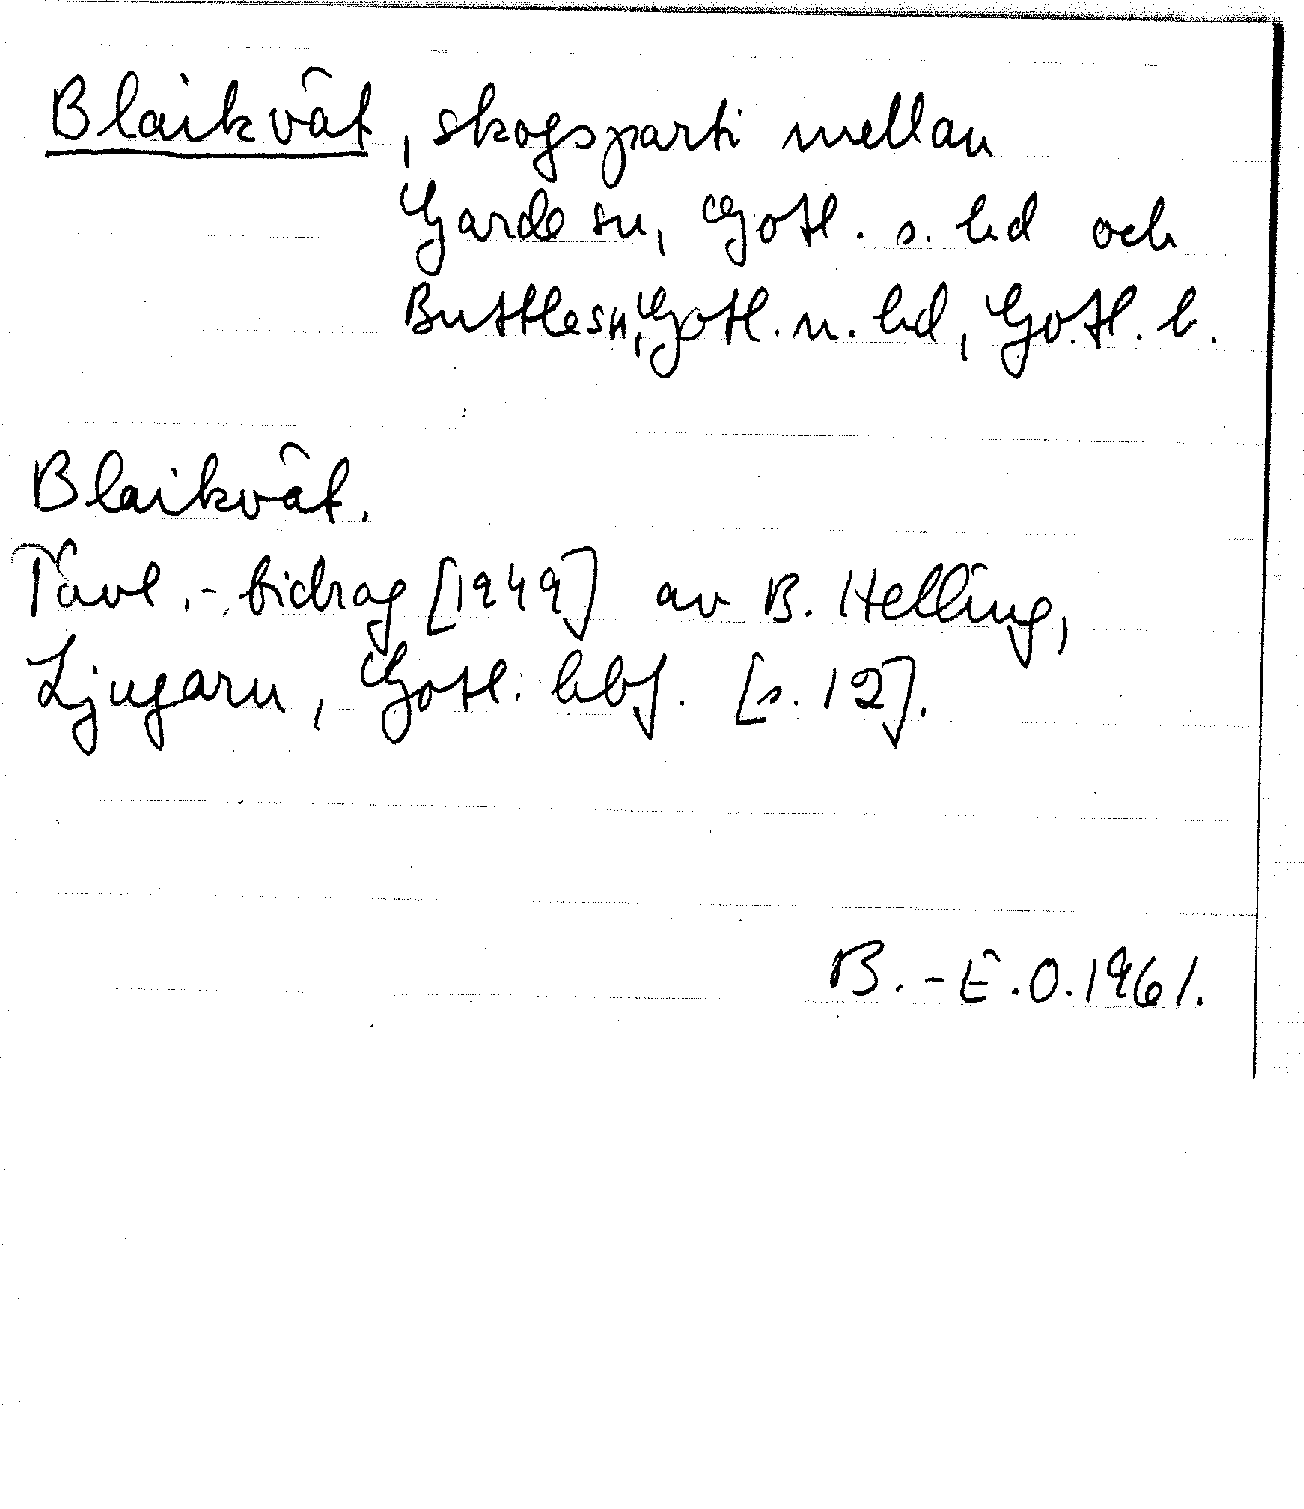 Blaikvât, skogsparti mellan
Garde sn, Gotl. s. hd och
Buttle sn, Gotl. n. hd, Gotl. l.
Blaikvât.
Tävl.-bidrag [1949] av B. Helling,
Ljugarn, Gotl. hbf. [s. 12].
B.-E.O. 1961.